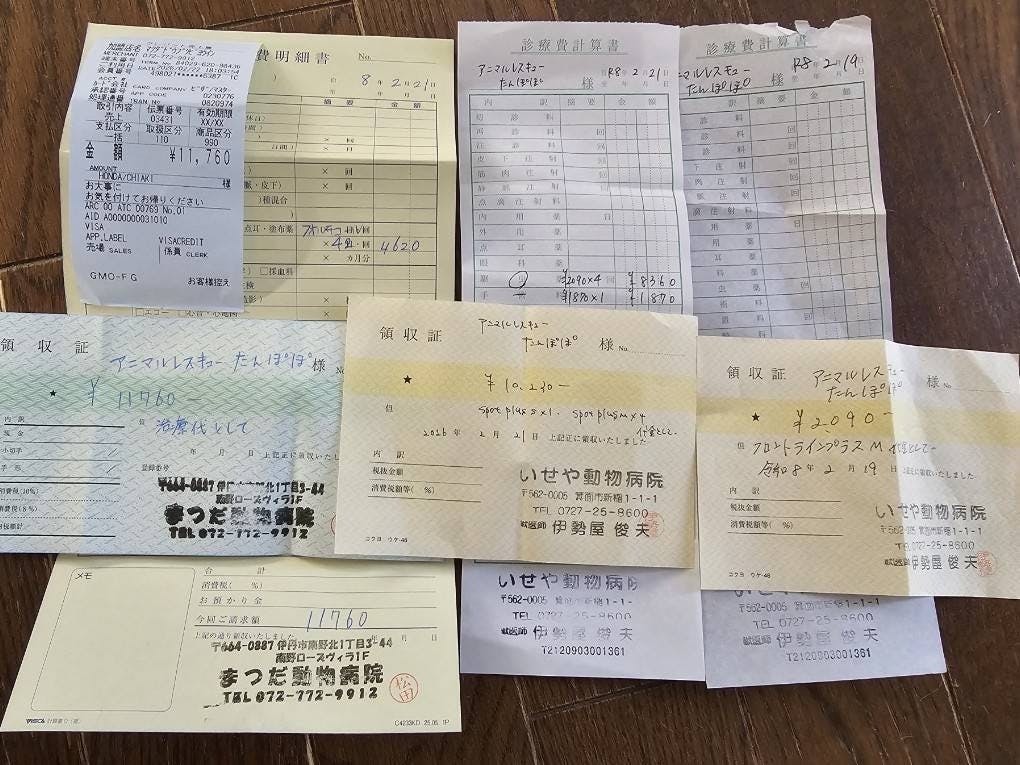 加盟店名 マツダドウブツビヨウイン
MERCHANT 072-772-9912
端末番号 84029-620-98436
利用日 DATE 2026/02/22 18:03:54
会員番号 498081******5387 1C
ACCT #
カード会社 ビザ/マスター
CARD COMPANY
承認番号 APP CODE 0230776
処理通番 TRAN No 0820974
取引内容 伝票番号 有効期限
売上 03431 XX/XX
支払区分 取扱区分 商品区分
一括 110 990
金額 ¥11,760
AMOUNT
HONDA/CHIAKI 様
お大事に
お気を付けてお帰りください
ARC 00 ATC 00769 No.01
AID A0000000031010
VISA
APP.LABEL VISACREDIT
売場 SALES 係員 CLERK
GMO-FG お客様控え
費明細書 No.
8年2月21日
摘要 金額
点耳・塗布薬
×4回 4620
×カ月分
診療費計算書
アニマルレスキュー たんぽぽ 様
R8 2/21
内訳 摘要 金額
初診料
再診料
往診料
皮下注射
筋肉注射
静脈注射
点滴注射料
内用薬 日
外用薬
点耳薬
眼科薬
¥2090×4 ¥8360
¥1870×1 ¥1870
いせや動物病院
〒562-0005 箕面市新稲1-1-1-
TEL 0727-25-8600
獣医師 伊勢屋 俊夫
T2120903001361
診療費計算書
R8 2/19
アニマルレスキュー たんぽぽ 様
訳 摘要 金額
いせや動物病院
〒562-0005 箕面市新稲1-1-1-
TEL 0727-25-8600
獣医師 伊勢屋 俊夫
T2120903001361
領収証
アニマルレスキュー たんぽぽ 様
★ ¥11760
但 治療代として
年 月 日 上記正に領収いたしました
内訳
現金
小切手
手形
消費税(10%)
消費税(8%)
登録番号
〒664-0887 伊丹市南野北1丁目3-44
南野ローズヴィラ1F
まつだ動物病院
TEL 072-772-9912
領収証
アニマルレスキュー たんぽぽ 様 No.
★ ¥10,230-
但 spot plus S×1. spot plus M×4 代金として
2026年2月21日 上記正に領収いたしました
内訳
税抜金額
消費税額等(%)
コクヨ ウケ-48
いせや動物病院
〒562-0005 箕面市新稲1-1-1
TEL 0727-25-8600
獣医師 伊勢屋 俊夫
領収証
アニマルレスキュー たんぽぽ 様 No.
★ ¥2,090-
但 フロントラインプラス M 代金として
令和8年2月19日 上記正に領収いたしました
内訳
税抜金額
消費税額等(%)
コクヨ ウケ-48
いせや動物病院
〒562-0005 箕面市新稲1-1-1
TEL 0727-25-8600
獣医師 伊勢屋 俊夫
メモ
合計
消費税(%)
お預かり金
今回ご請求額 11760
上記の通り領収いたしました 年 月 日
〒664-0887 伊丹市南野北1丁目3-44
南野ローズヴィラ1F
まつだ動物病院
TEL 072-772-9912
松田
C4233KD 25.05. 1P